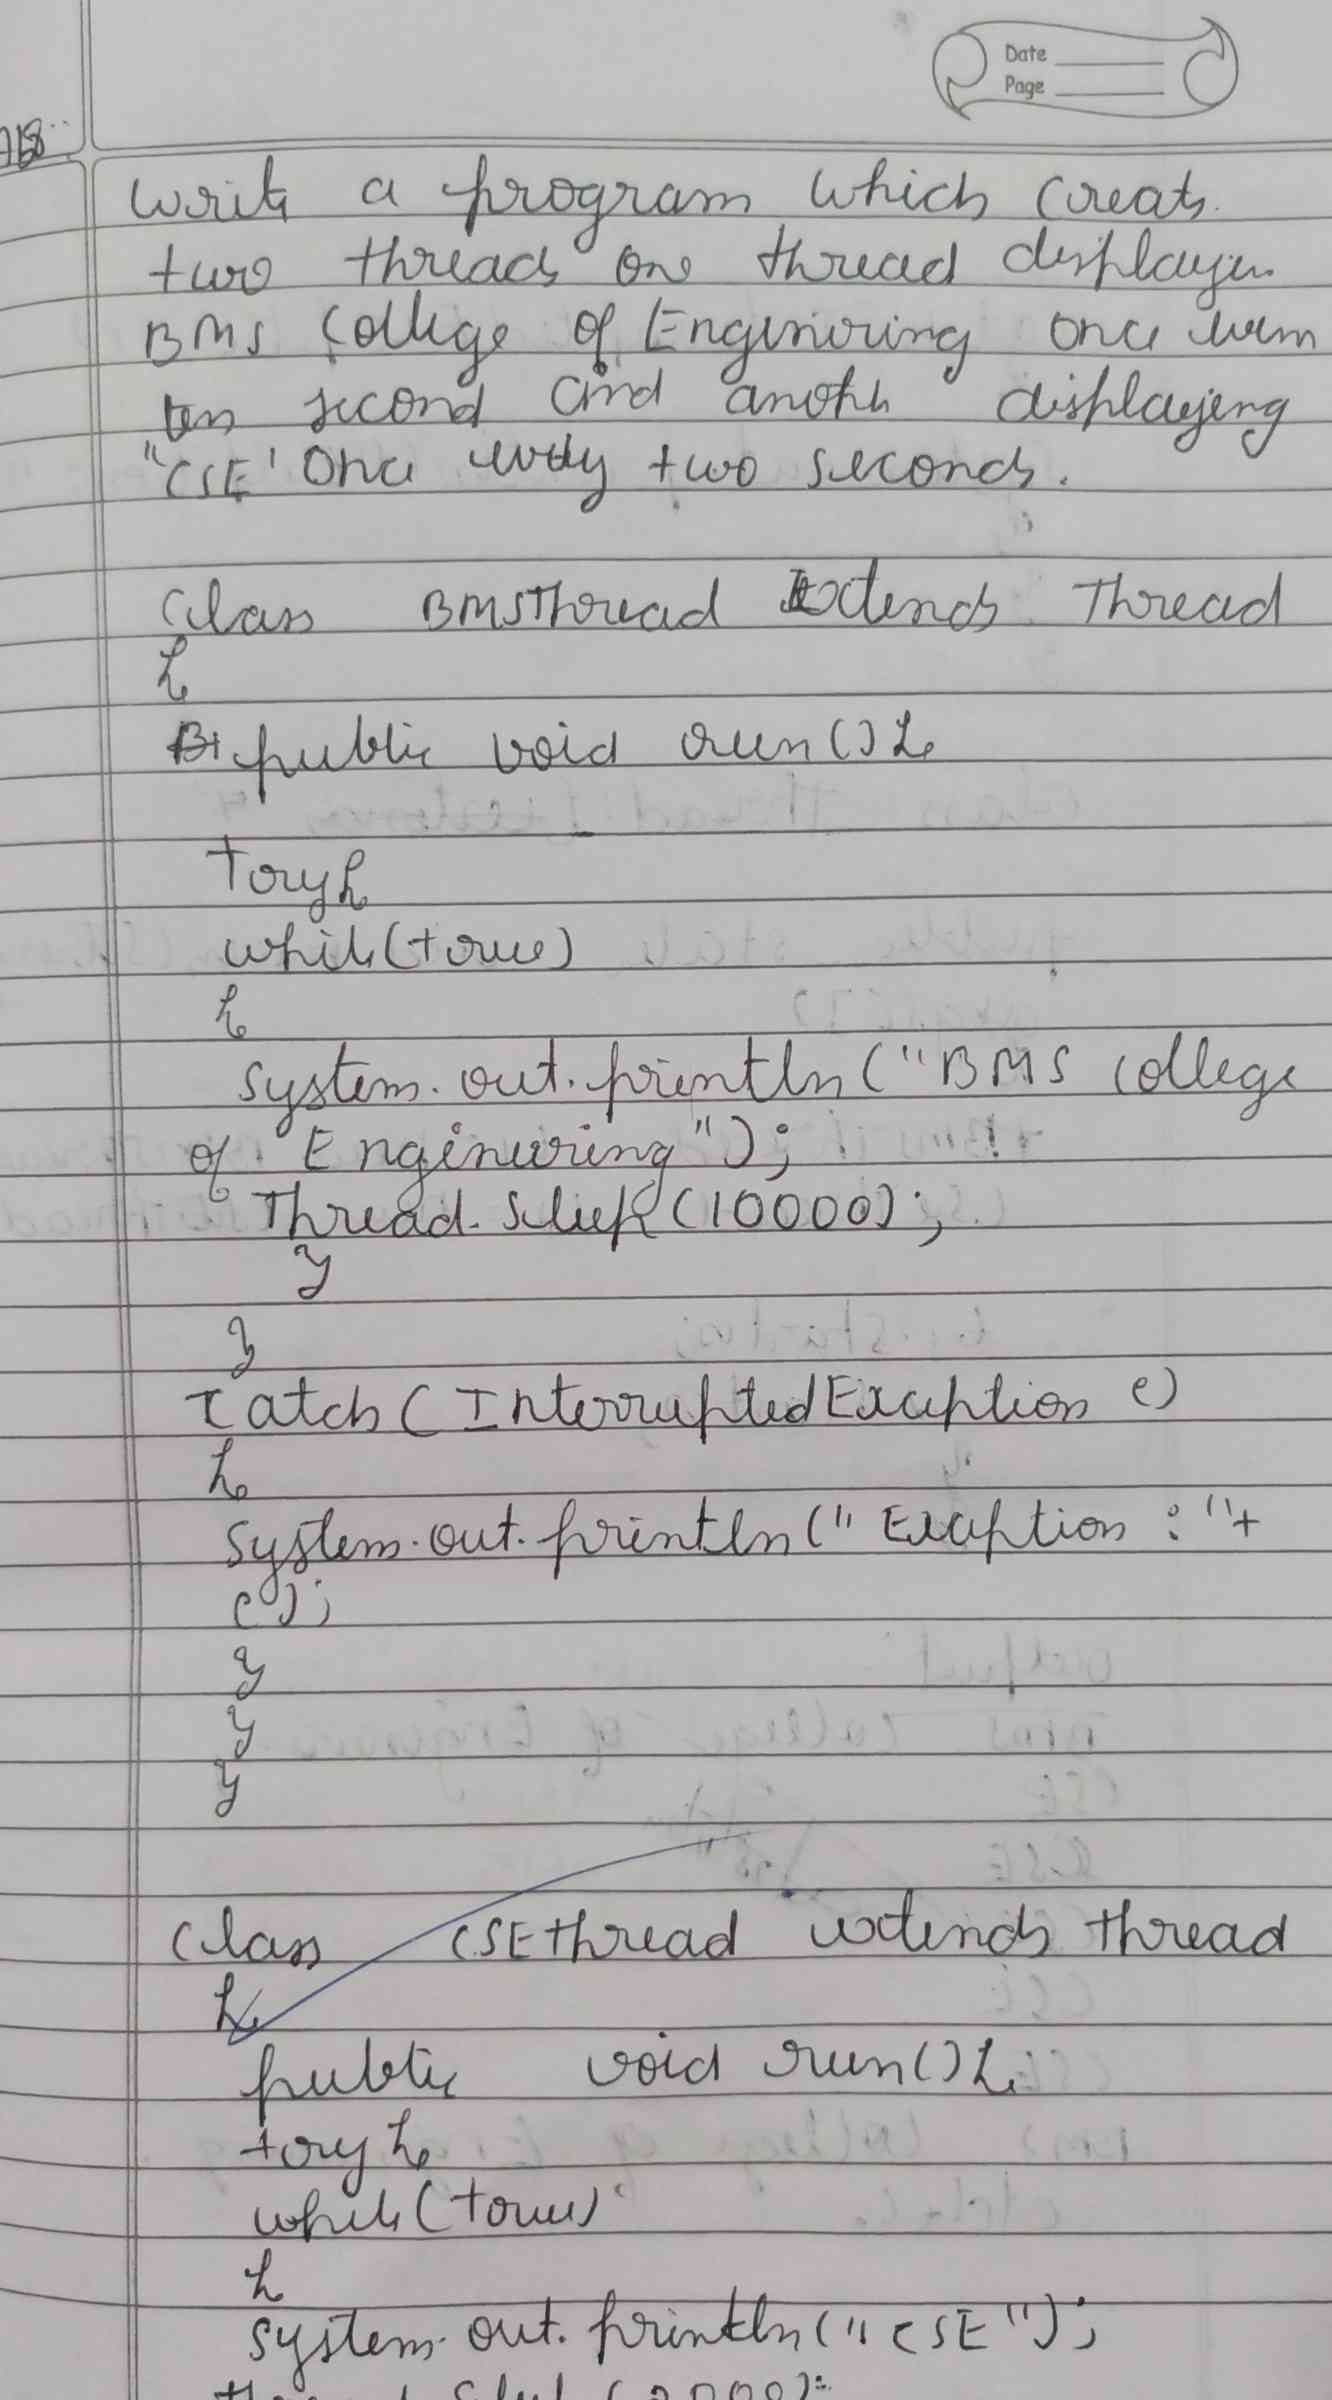 Date
Page
Write a program which creats
two threads one thread displayin
BMS College of Enginering once
ten second and anoth displaying
"CSE' Once two seconds.
Class BMSThread Extends Thread
{
public void run(){
Try{
while(true)
{
System.out.println("BMS College
of Engineering");
Thread.Sleep(10000);
}
}
Catch(InterruptedException e)
{
System.out.println("Exception : "+
e);
}
}
}
Class CSEthread extends thread
{
public void run(){
try{
while(true)
{
System.out.println("CSE");
thread.Sleep(2000);